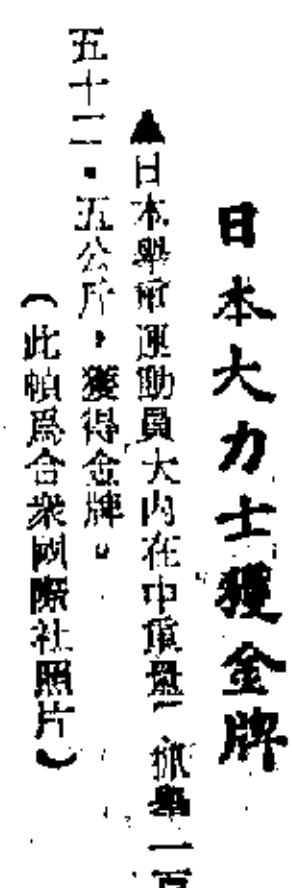 日本大力士獲金牌
▲日本舉重運動員大內在中重量「抓舉一百
五十二・五公斤，獲得金牌。
（此幀爲合衆國際社照片）